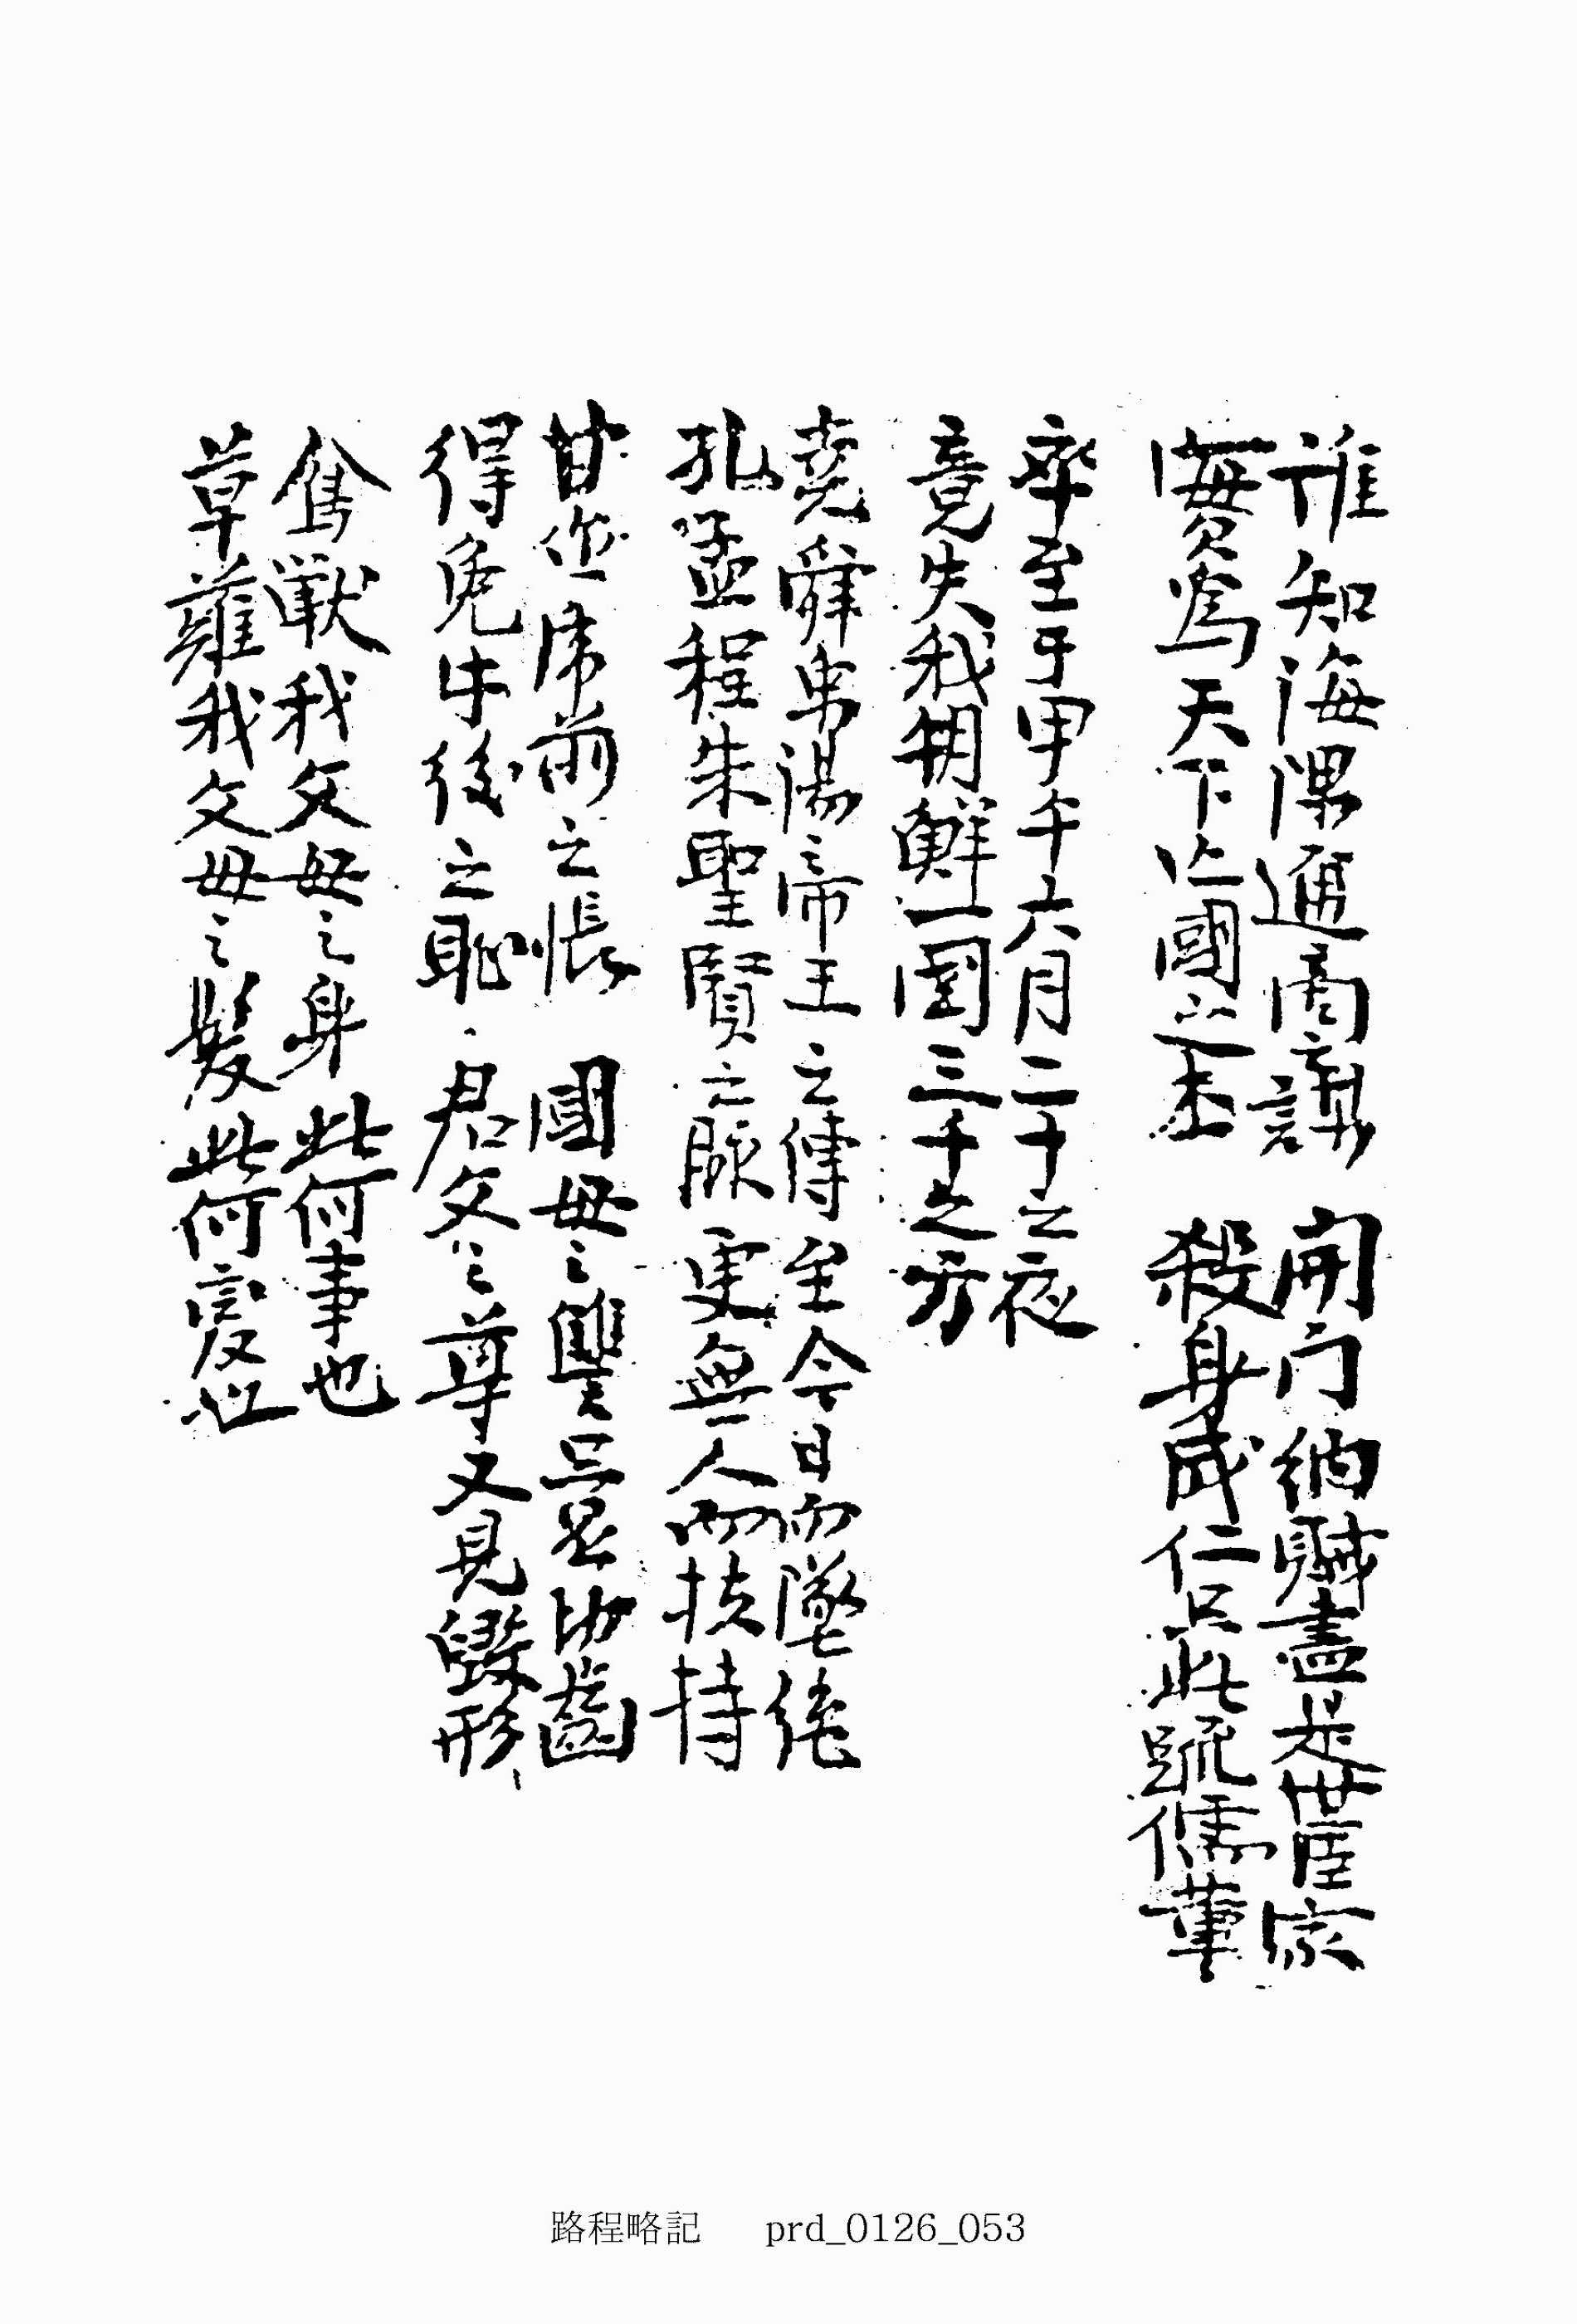 誰知海隅通商講 開门納賊盡是世臣家
實爲天下亡國之本 殺身成仁只此疏儒輩
卒至于甲午六月二十之夜
竟失我朝鮮一國三千之方
堯舜禹湯帝王之傳至今日而墜絶
孔孟程朱聖賢之脉更無人而扶持
甘作虎前之倀 國母之讐切齒
得免牛後之恥 君父之尊又見毀形
禽獸我父母之身此何事也
草薙我父母之髮此何變也
路程略記 prd_0126_053